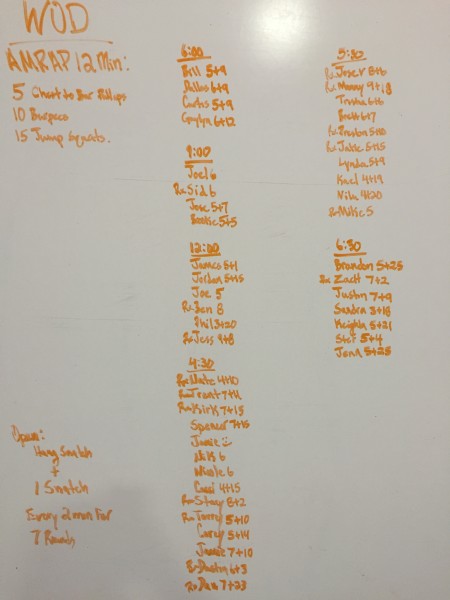 WOD
AMRAP 12 Min:
5 Chest to Bar Pullups
10 Burpees
15 Jump Squats.
6:00
Bill 5+9
Dallas 6+9
Curtis 5+9
6+12
9:00
Joel 6
Rx Sid 6
Jose 5+7
5+5
12:00
James 5+1
Jordan 5+15
Joe 5
Rx Ben 8
Phil 3+20
Rx Jess 9+8
4:30
Rx Nate 4+10
Rx Trent 7+4
Rx Kirk 7+15
Spencer 7+15
Jamie ☺
Nik 6
Nicole 6
4+15
Rx Stacy 8+2
Rx Torry 5+10
Corey 5+14
Jamie 7+10
Rx Dustin 6+3
Rx Dan 7+23
5:30
Rx Jose R 8+6
Rx Manny 9+18
Trisha 6+6
Brett 6+7
Rx Preston 5+10
Rx Jake 5+15
Lynda 5+9
Kael 4+19
Nik 4+20
Rx Mike 5
6:30
Brandon 5+25
Rx Zach 7+2
Justin 7+9
Sandra 3+16
Keighla 5+21
Stef 5+4
Jena 5+25
Open:
Hang Snatch
+
1 Snatch
Every 2 min For
7 Rounds